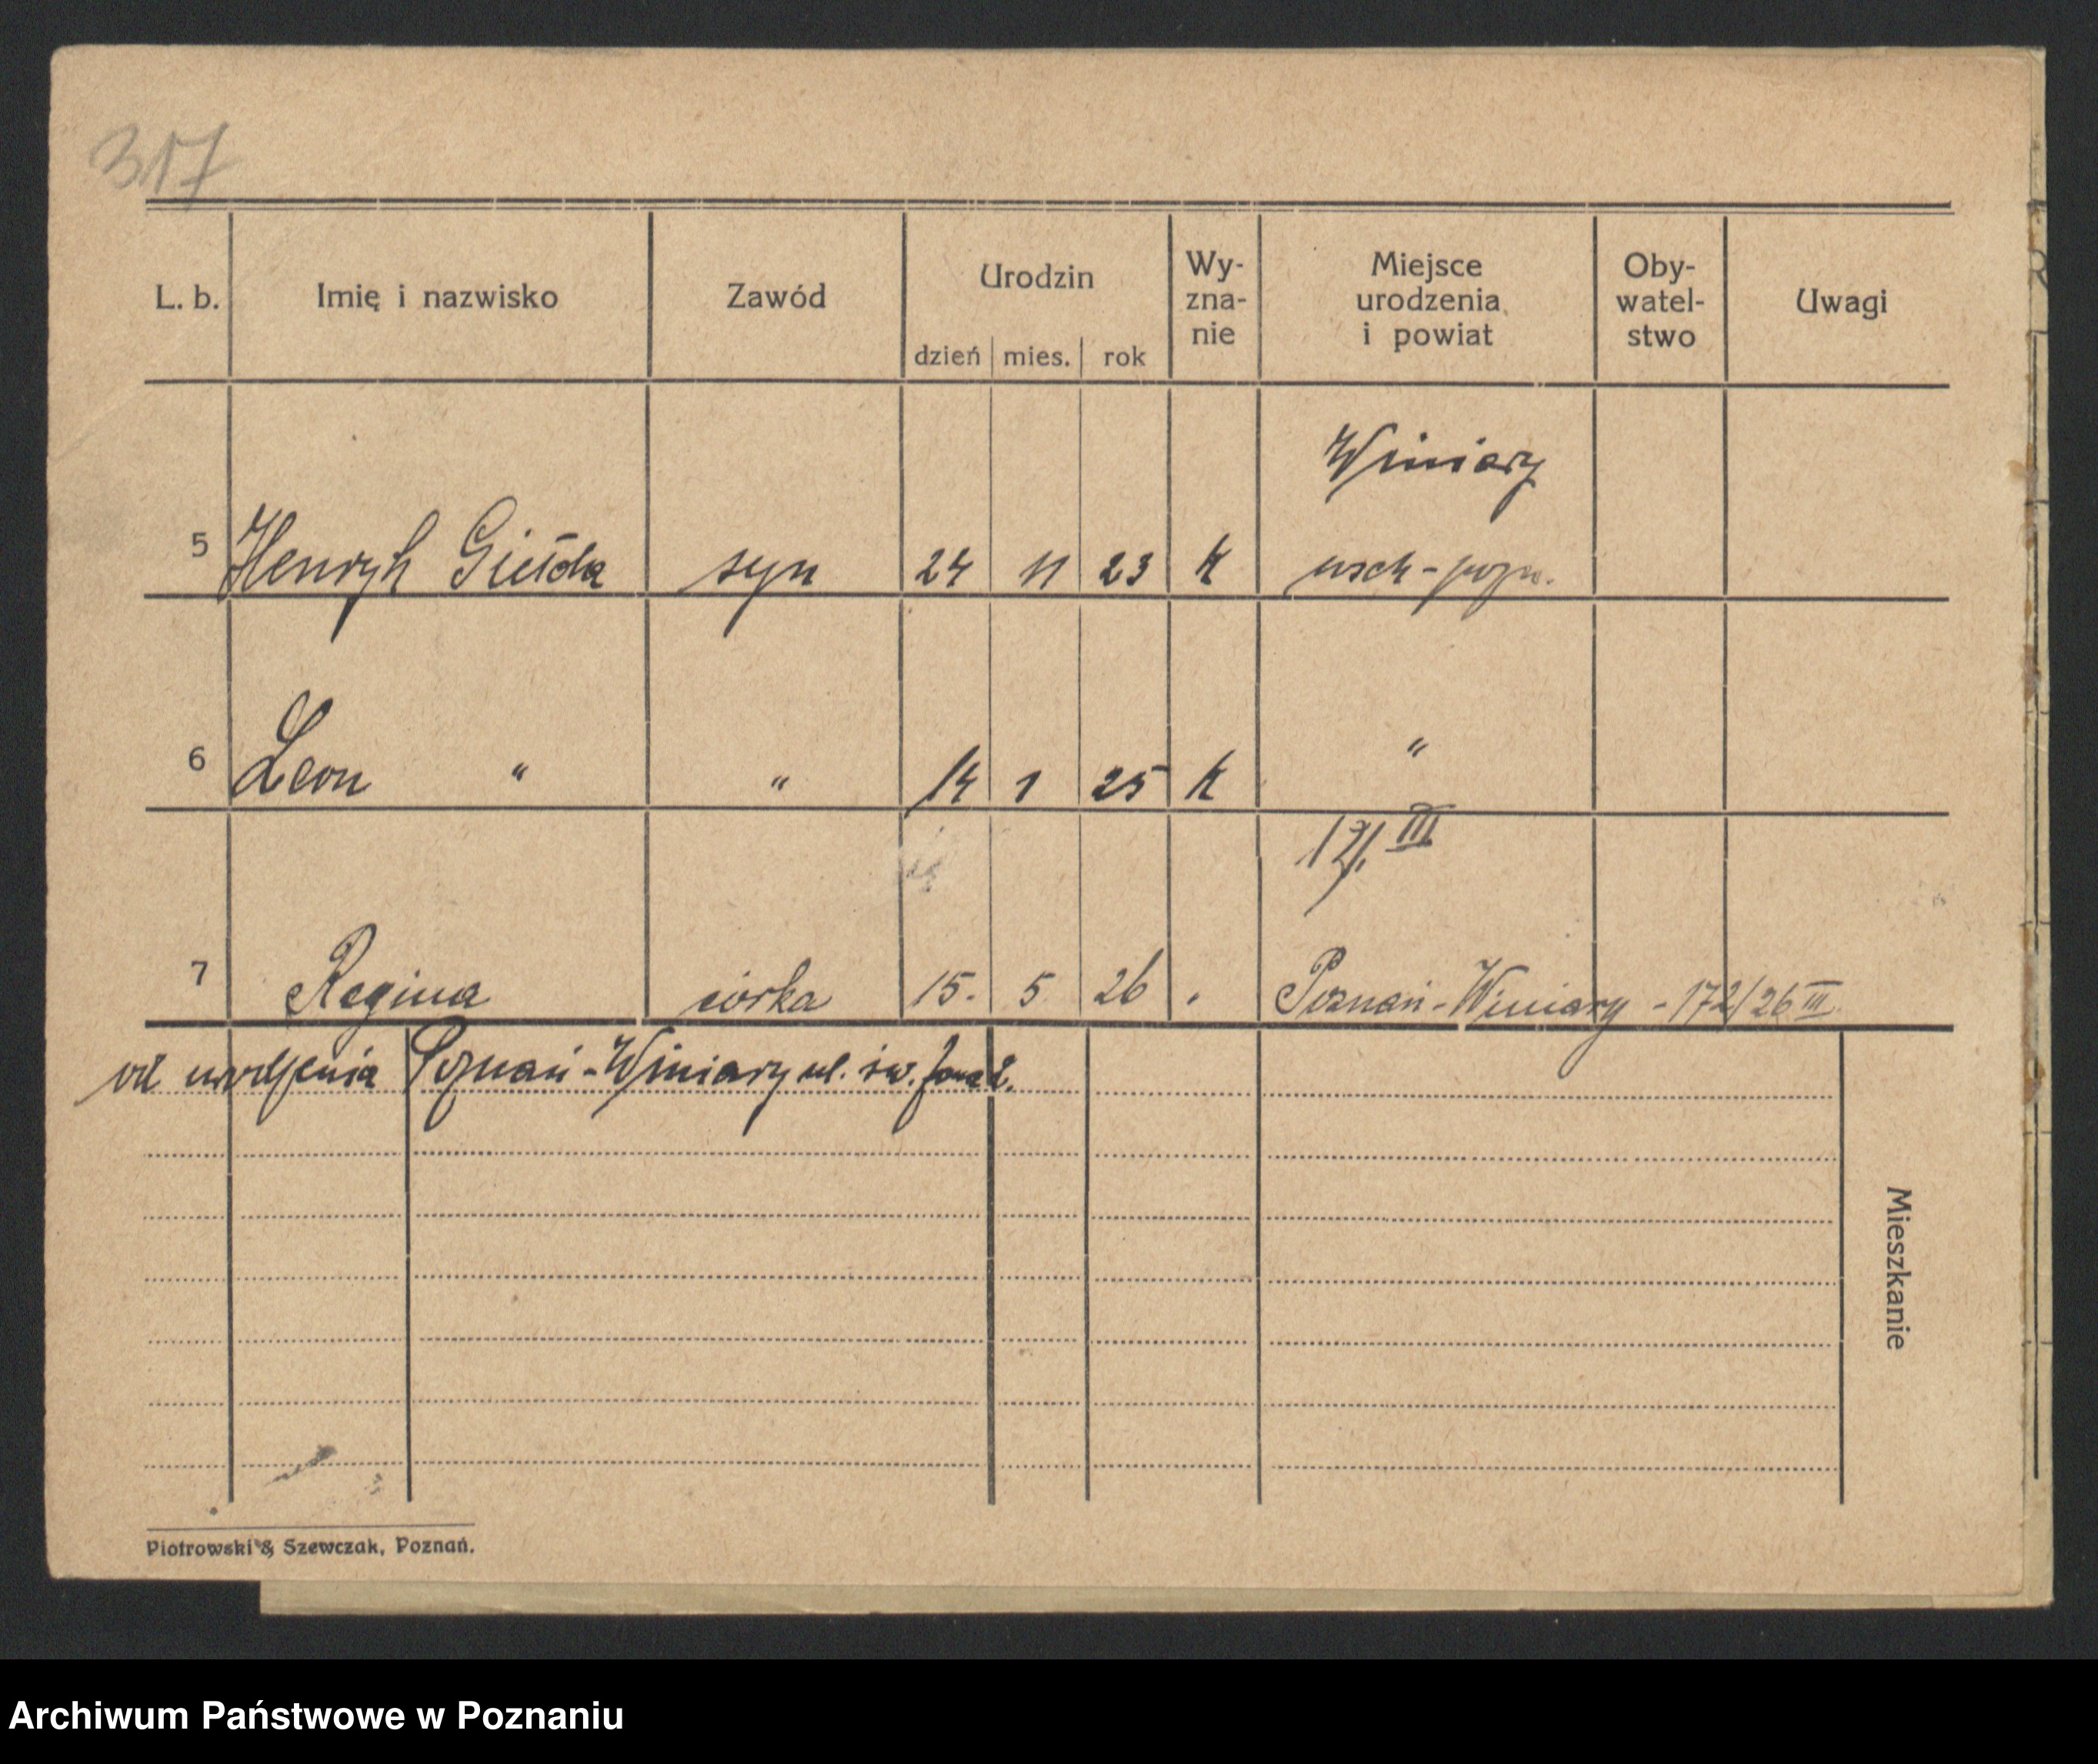 317
L. b. Imię i nazwisko Zawód Urodzin Wy-zna-nie Miejsce urodzenia i powiat Oby-watel-stwo Uwagi
dzień mies. rok
Winiary
5 Henryk Giełda syn 24 11 23 K wsch-pozn.
6 Leon " " 14 1 25 K "
17/III
7 Regina córka 15. 5 26 . Poznań-Winiary - 172/26 III
od urodzenia Poznań-Winiary ul. św. Jana 2.
Mieszkanie
Piotrowski & Szewczak, Poznań.
Archiwum Państwowe w Poznaniu